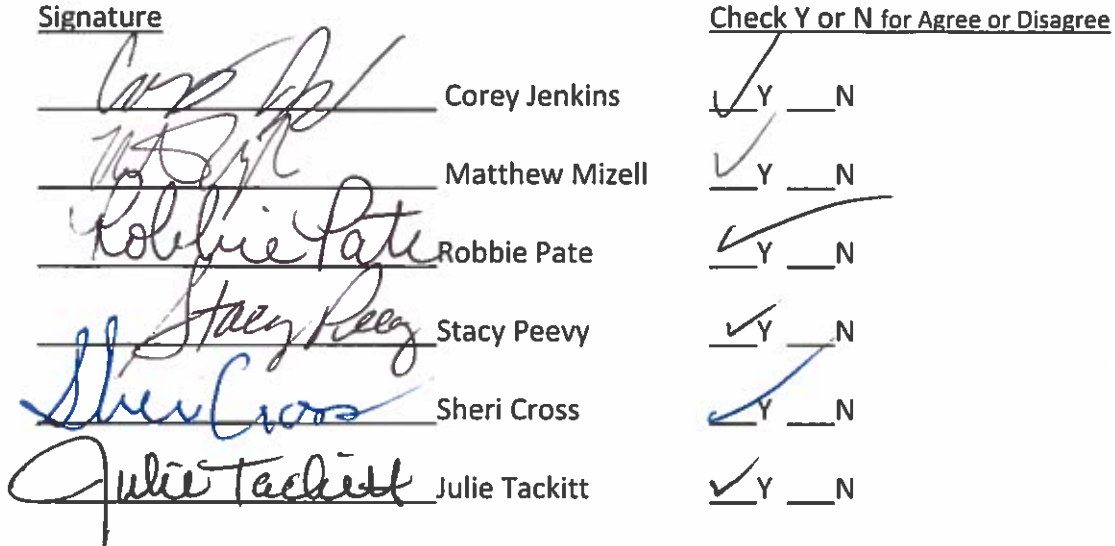 Signature Check Y or N for Agree or Disagree
Corey Jenkins ✓Y ___N
Matthew Mizell ✓Y ___N
Robbie Pate Robbie Pate ✓Y ___N
Stacy Peevy Stacy Peevy ✓Y ___N
Sheri Cross Sheri Cross ✓Y ___N
Julie Tackitt Julie Tackitt ✓Y ___N